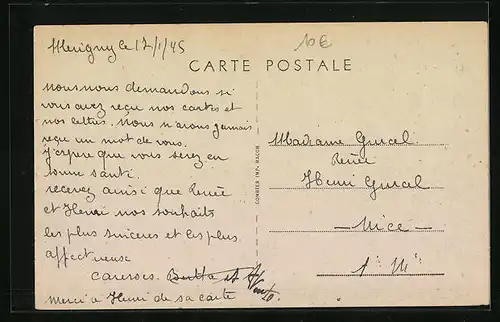 Merigny le 17/1/45
10€
CARTE POSTALE
nous nous demandons si
vous avez reçu nos cartes et
nos lettres. Nous n'avons jamais
reçu un mot de vous.
J'espere que vous serez en
bonne santé.
recevez ainsi que Renée
et Henri nos souhaits
les plus sinceres et les plus
affectueuse
caresses. Berthe et
merci a Henri de sa carte
COMBIER IMP. MACON
Madame Gural
Renée
Henri Gural
— Nice —